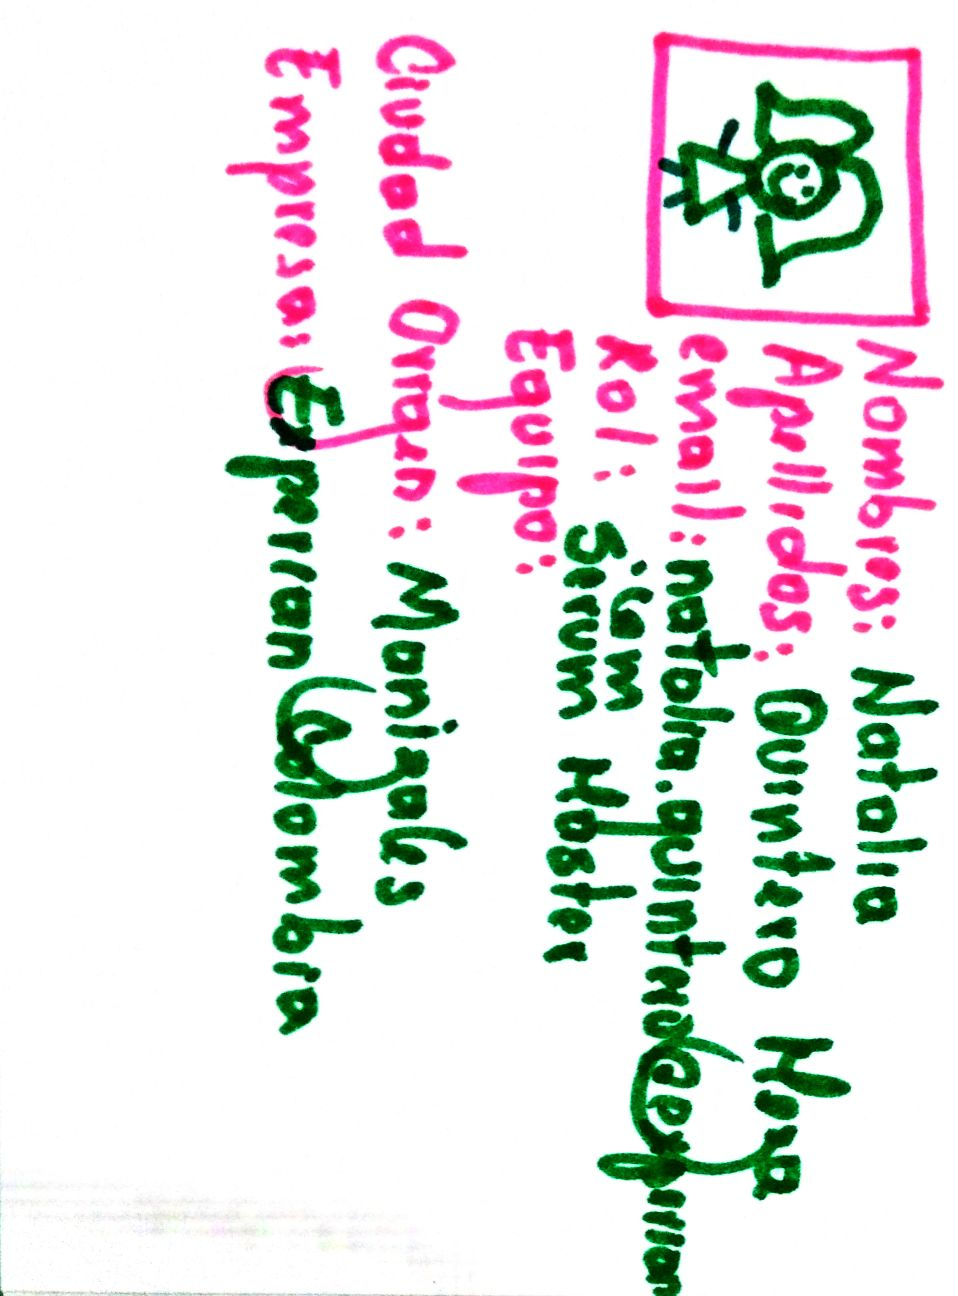 Nombres: Natalia
Apellidos: Quintero Mora
email: natalia.quintero@experian
.com
Rol: Scrum Master
Equipo:
Ciudad Origen: Manizales
Empresa: Experian Colombia